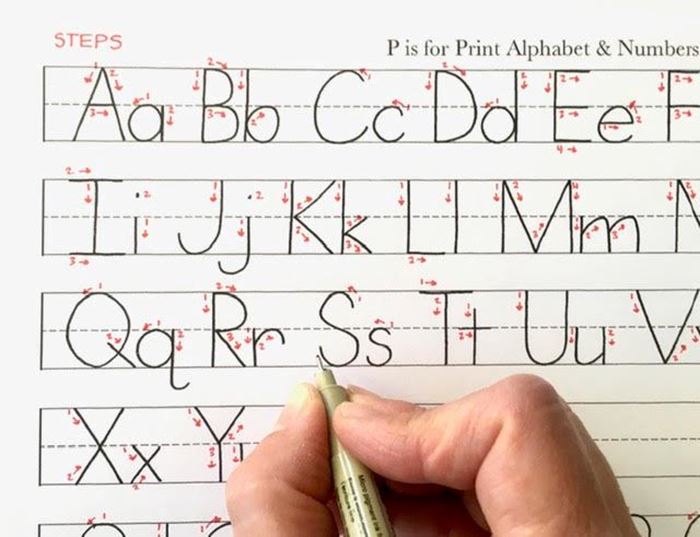 STEPS
P is for Print Alphabet & Numbers
Aa Bb Cc Dd Ee F
Ii Jj Kk Ll Mm N
Qq Rr Ss Tt Uu V
Xx Y